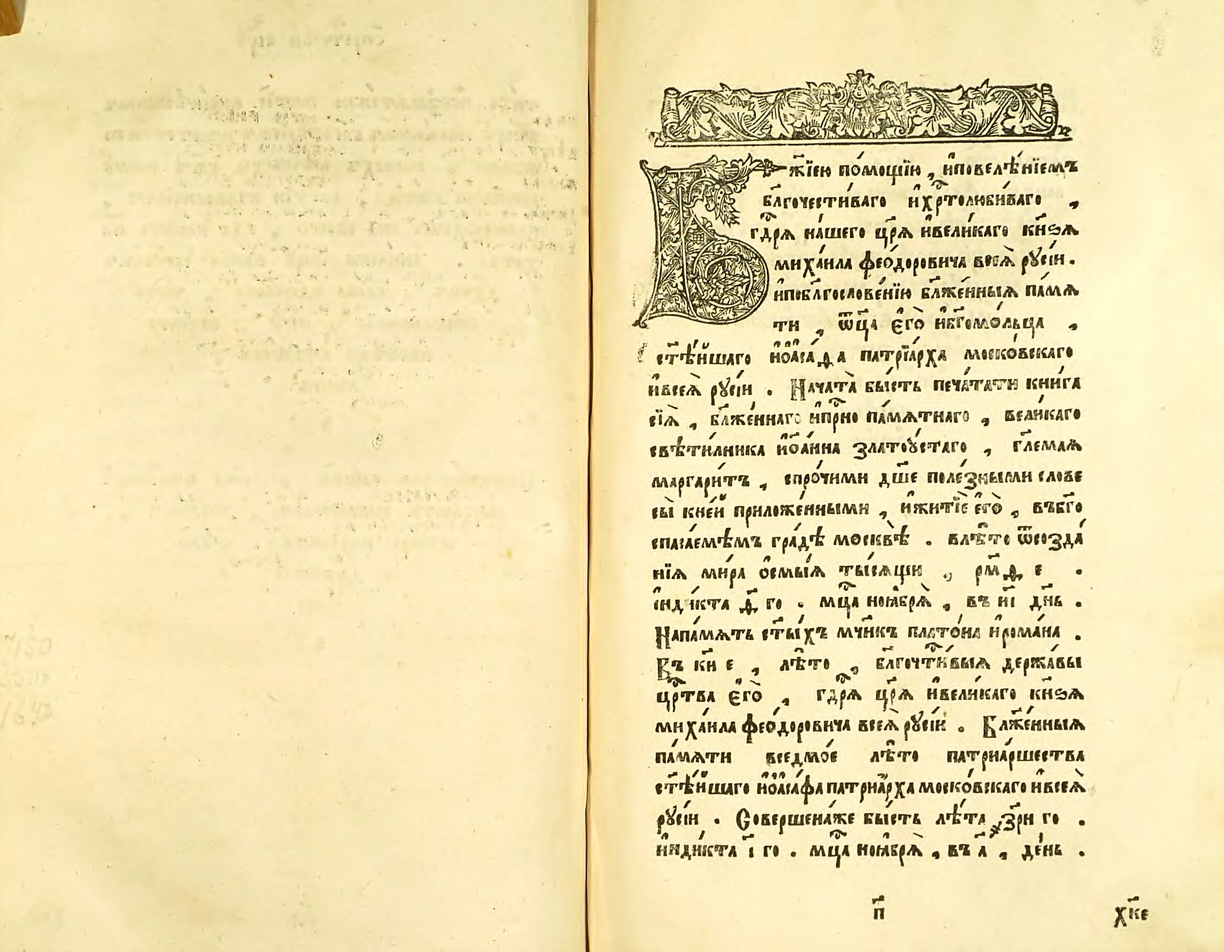 Бж҃їею по́мощїю , и҆повелѣ́нїемъ
благочести́ваго и҆хр҃толюби́ваго ,
гдⷭ҇рѧ на́шего цр҃ѧ и҆вели́каго кнѧ́ѕѧ
михаи́ла фео́доровича всеѧ̀ рꙋсі́и .
и҆поблгⷭ҇ослове́нїю бл҃же́нныѧ па́мѧ
ти , ѿц҃а є҆гѡ̀ и҆бг҃омо́льца ,
ст҃ѣ́йшаго і҆ѡаса́фа патрїа́рха моско́вскаго
и҆всеѧ̀ рꙋсі́и . Нача́та̀ бы́сть печа́тати кни́га
сїѧ̀ , бл҃же́ннаго и҆прⷭ҇но па́мѧтнаго , вели́каго
свѣти́лника і҆ѡа́нна златоꙋ́стаго , гл҃емаѧ
маргари́тъ , спро́чими дш҃е поле́зными слове
сы̀ кне́й приложе́нными , и҆житїѐ є҆гѡ̀ , въбг҃о
спаса́емѣмъ гра́дѣ москвѣ̀ . влѣ́то ѿсозда́
нїѧ ми́ра о҆смы́ѧ ты́сѧщи , рм҃ѳ е .
і҆ндикта д҃ го . мцⷭ҇а ноѧ́брѧ̀ , въ иі҃ дн҃ь .
Напа́мѧть ст҃ы́хъ мч҃нкъ плато́на и҆рома́на .
Въ ки҃ е , лѣ́то , благочⷭ҇ти́выѧ держа́вы
црⷭ҇тва є҆гѡ̀ , гдⷭ҇рѧ цр҃ѧ и҆вели́каго кнѧ́ѕѧ
михаи́ла фео́доровича всеѧ̀ рꙋсі́и . Бл҃же́нныѧ
па́мѧти вседмо́е лѣ́то патриа́ршества
ст҃ѣ́йшаго і҆ѡаса́фа патриа́рха моско́вскаго и҆всеѧ̀
рꙋсі́и . Соверше́на́же бы́сть лѣ́та , ҂зрн҃ го .
и҆нди́кта і҃ го . мцⷭ҇а ноѧ́брѧ̀ , въ а҃ , де́нь .
п҃
хк҃е
7150